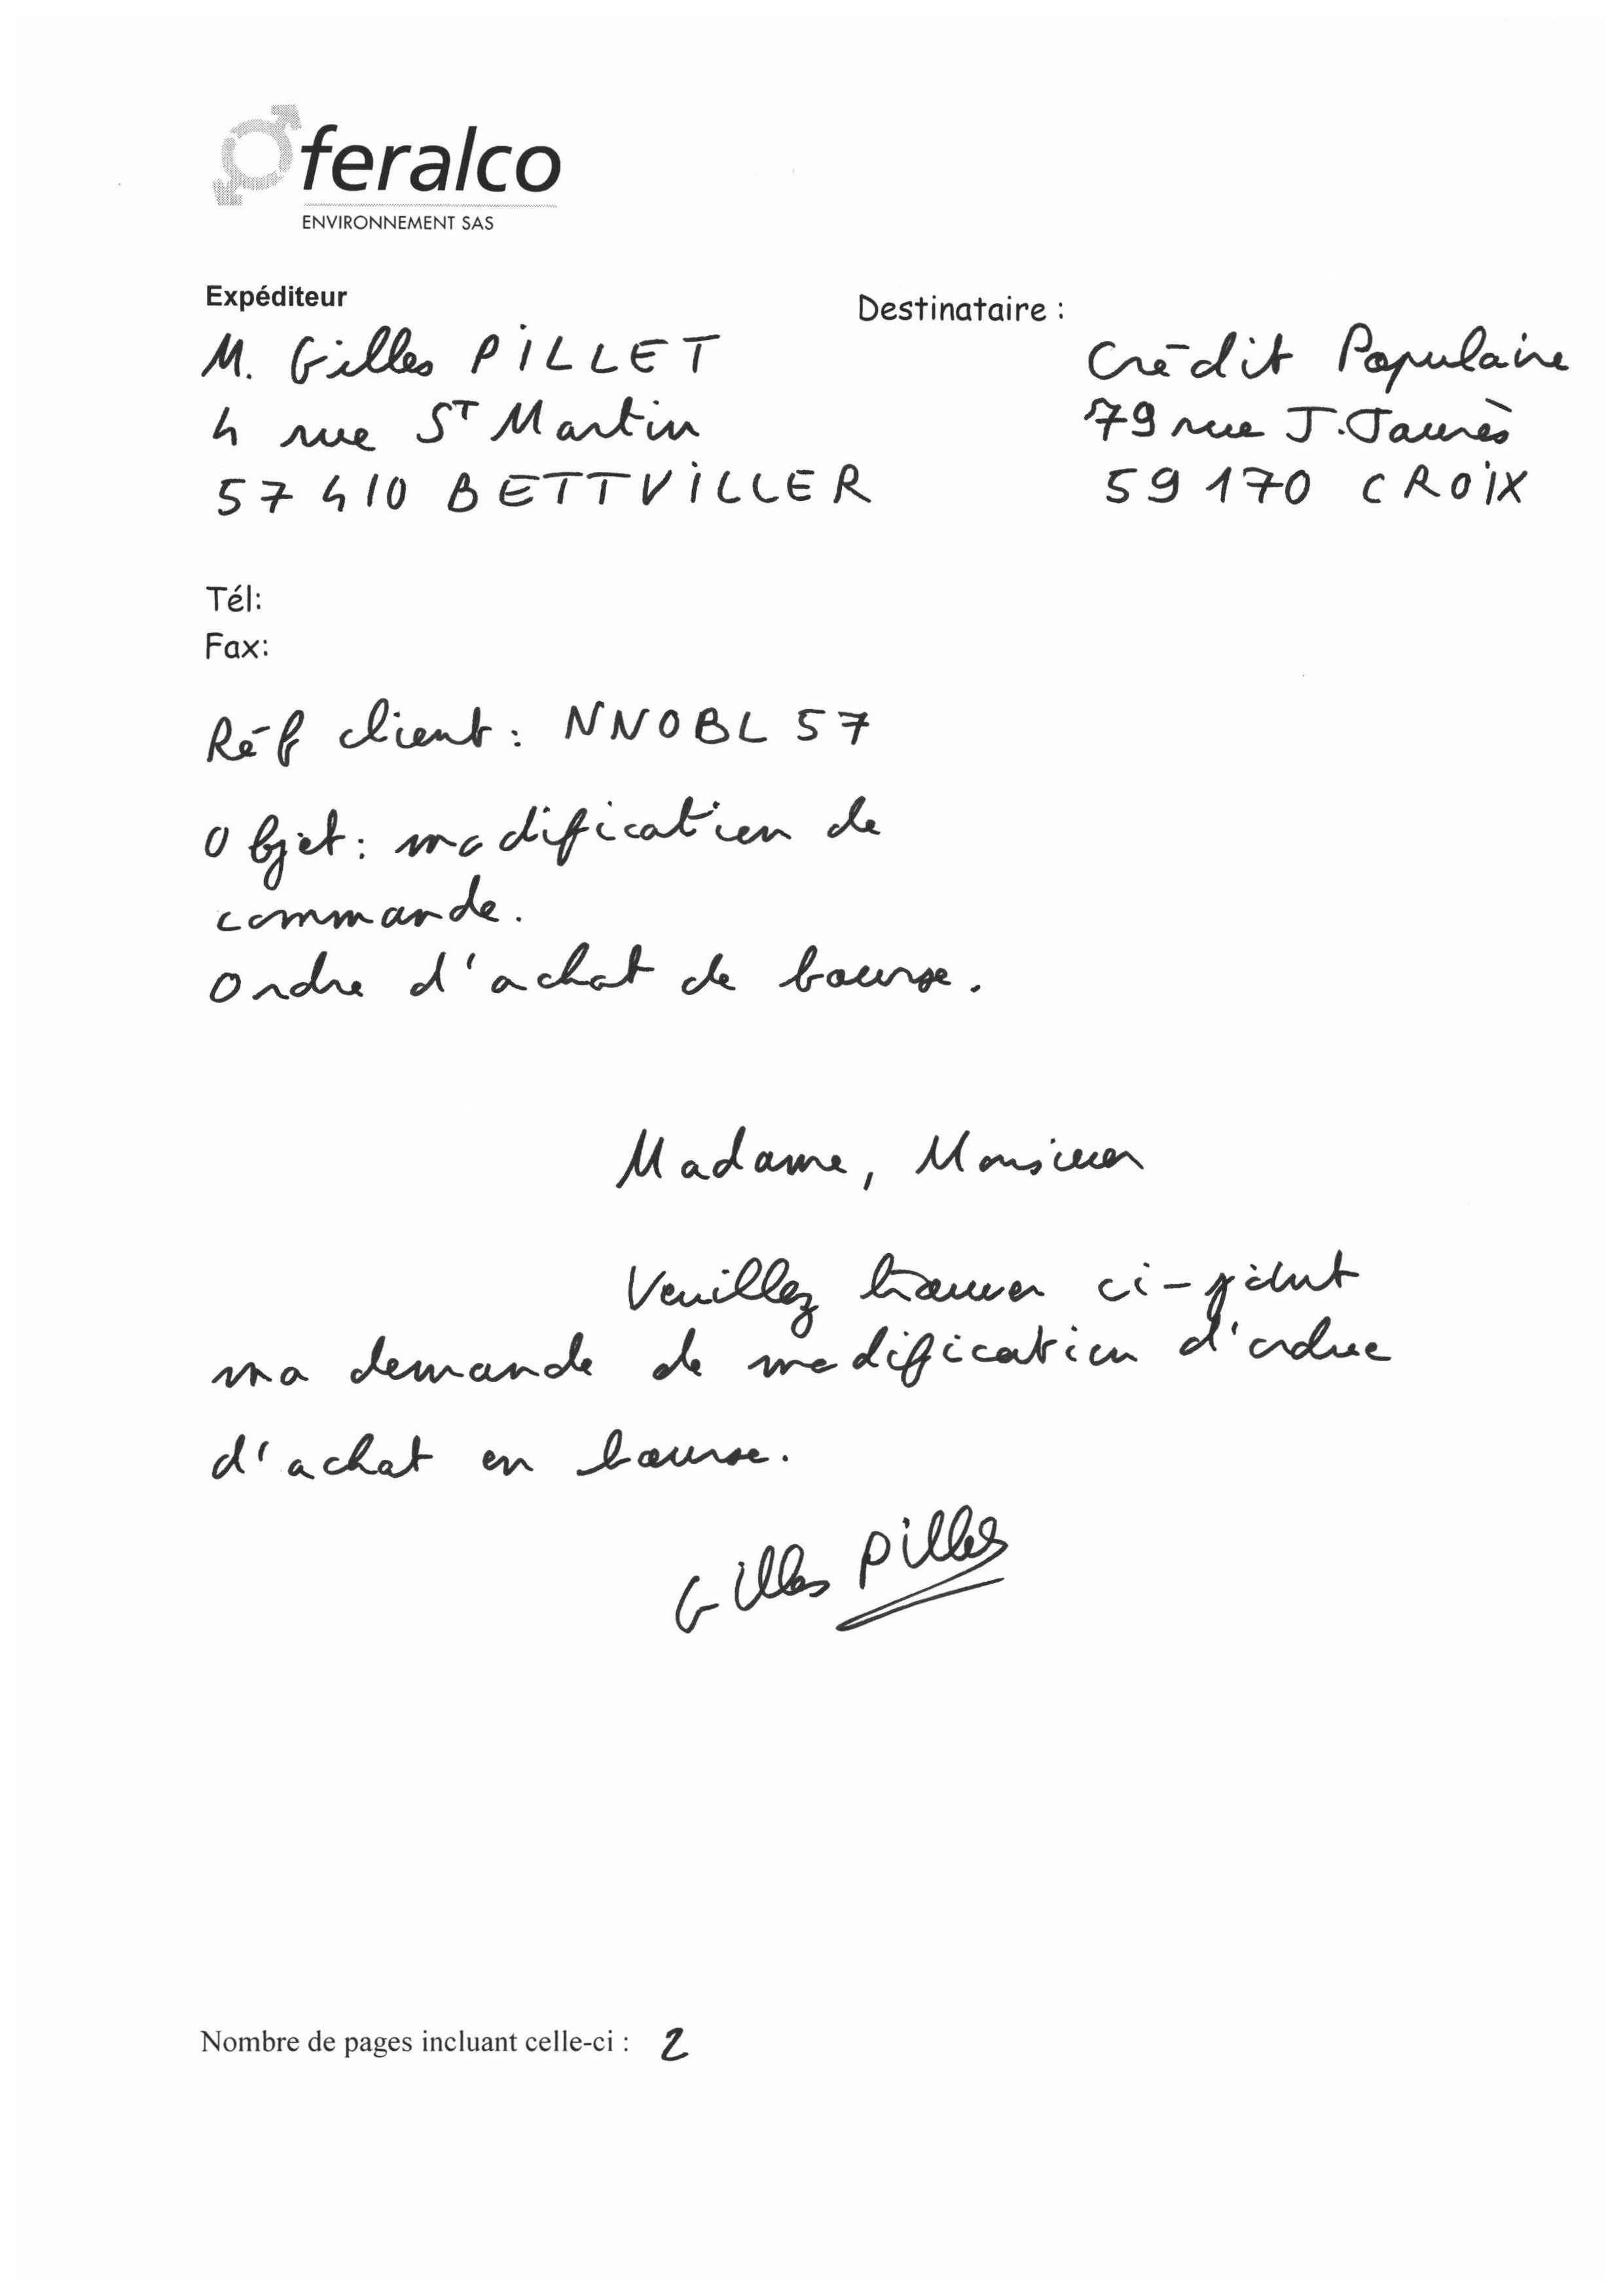 feralco
ENVIRONNEMENT SAS
Expéditeur
M. Gilles PILLET
4 rue ST Martin
57410 BETTVILLER
Destinataire :
Crédit Populaire
79 rue J. Jaurès
59170 CROIX
Tél:
Fax:
Réf client : NNOBL 57
Objet : modification de
commande.
Ordre d'achat de bourse.
Madame, Monsieur
Veuillez trouver ci-joint
ma demande de modification d'ordre
d'achat en bourse.
Gilles Pillet
Nombre de pages incluant celle-ci : 2